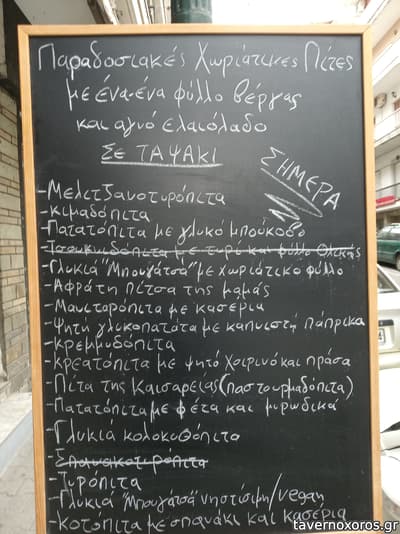 Παραδοσιακές Χωριάτικες Πίτες
με ένα-ένα φύλλο βέργας
και αγνό ελαιόλαδο
Σε ΤΑΨΑΚΙ
ΣΗΜΕΡΑ
-Μελιτζανοτυρόπιτα
-κιμαδόπιτα
-Πατατόπιτα με γλυκό μπούκοβο
-Τσουκνιδόπιτα με τυρί και φύλλο Ολικής
-Γλυκιά "Μπουγάτσα" με χωριάτικο φύλλο
-Αφράτη πίτσα της μαμάς
-Μανιταρόπιτα με κασέρια
-Ψητή γλυκοπατάτα με καπνιστή πάπρικα
-κρεμμυδόπιτα
-κρεατόπιτα με ψητό χοιρινό και πράσα
-Πίτα της Καισαρείας (παστουρμαδόπιτα)
-Πατατόπιτα με φέτα και μυρωδικά
-Γλυκιά κολοκυθόπιτα
-Σπανακοτυρόπιτα
-Τυρόπιτα
-Γλυκιά "Μπουγάτσα" νηστίσιμη/vegan
-κοτόπιτα με σπανάκι και κασέρια
tavernoxoros.gr